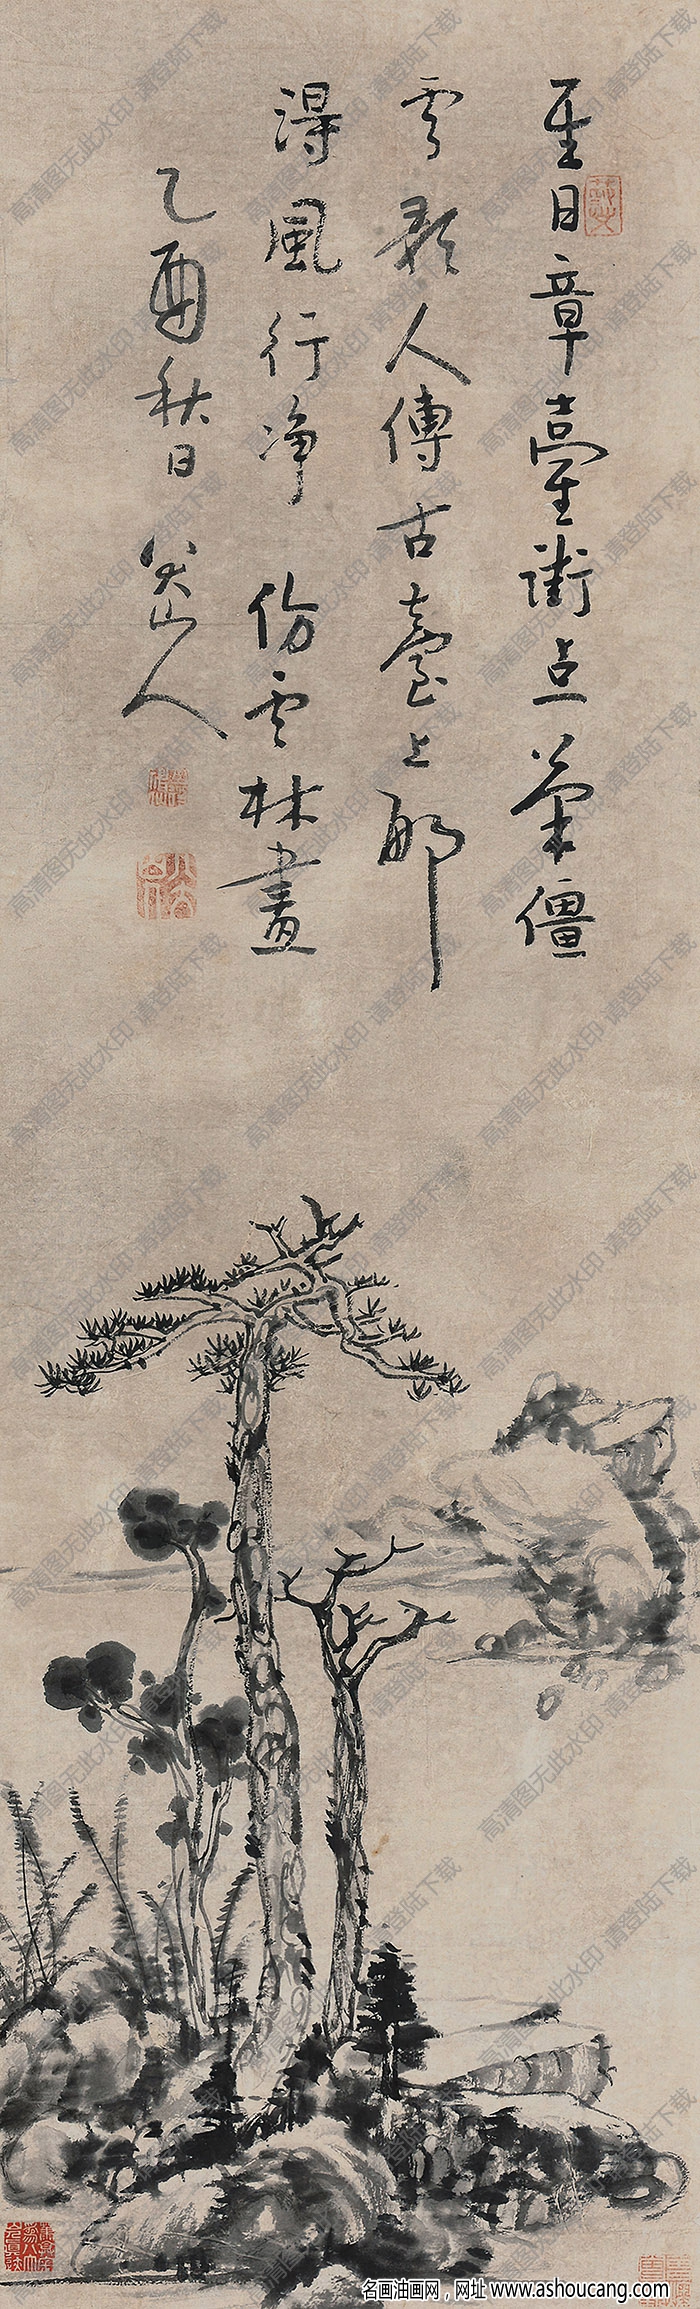 至日章臺街点筆僵
雲影人傳古臺上那
得風行净 仿雲林畫
乙酉秋日 八大山人
高清图无此水印 请登陆下载
名画油画网，网址 www.ashoucang.com